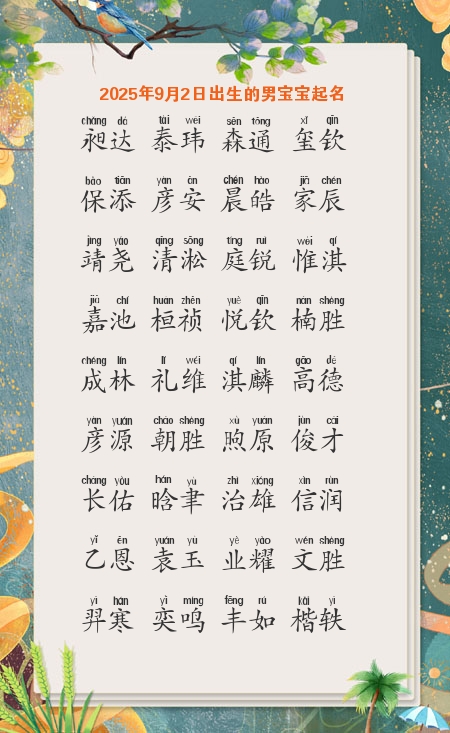 2025年9月2日出生的男宝宝起名
chǎng dá tài wěi sēn tōng xǐ qīn
昶达 泰玮 森通 玺钦
bǎo tiān yàn ān chén hào jiā chén
保添 彦安 晨皓 家辰
jìng yáo qīng sōng tíng ruì wéi qí
靖尧 清淞 庭锐 惟淇
jiā chí huán zhēn yuè qīn nán shèng
嘉池 桓祯 悦钦 楠胜
chéng lín lǐ wéi qí lín gāo dé
成林 礼维 淇麟 高德
yàn yuán cháo shèng xù yuán jùn cái
彦源 朝胜 煦原 俊才
cháng yòu hán yù zhì xióng xìn rùn
长佑 晗聿 治雄 信润
yǐ ēn yuán yù yè yào wén shèng
乙恩 袁玉 业耀 文胜
yì hán yì míng fēng rú kǎi yì
羿寒 奕鸣 丰如 楷轶